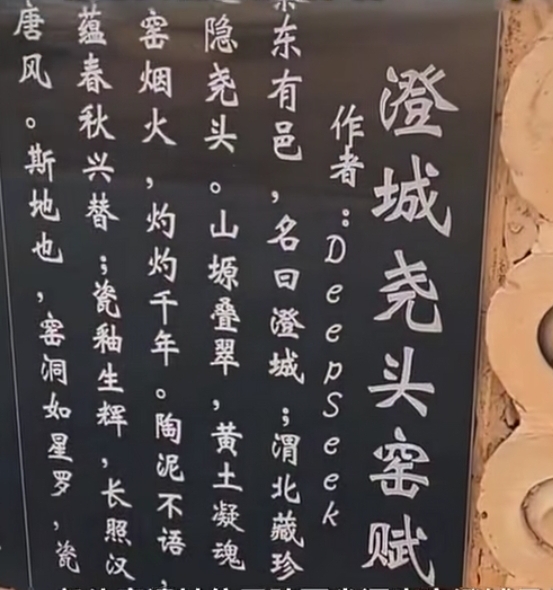 澄城尧头窑赋
作者：DeepSeek
东有邑，名曰澄城；渭北藏珍
隐尧头。山塬叠翠，黄土凝魂
窑烟火，灼灼千年。陶泥不语，
蕴春秋兴替；瓷釉生辉，长照汉
唐风。斯地也，窑洞如星罗，瓷